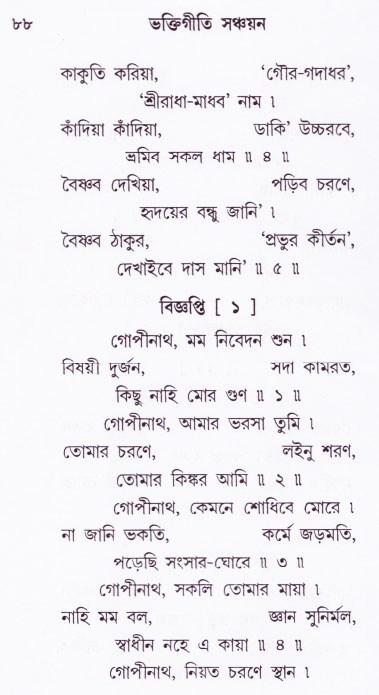 ৮৮ ভক্তিগীতি সঞ্চয়ন
কাকুতি করিয়া, ‘গৌর-গদাধর’,
‘শ্রীরাধা-মাধব’ নাম ।
কাঁদিয়া কাঁদিয়া, ডাকি’ উচ্চরবে,
ভ্রমিব সকল ধাম ॥ ৪ ॥
বৈষ্ণব দেখিয়া, পড়িব চরণে,
হৃদয়ের বন্ধু জানি’ ।
বৈষ্ণব ঠাকুর, ‘প্রভুর কীর্তন’,
দেখাইবে দাস মানি’ ॥ ৫ ॥
বিজ্ঞপ্তি [ ১ ]
গোপীনাথ, মম নিবেদন শুন ।
বিষয়ী দুর্জন, সদা কামরত,
কিছু নাহি মোর গুণ ॥ ১ ॥
গোপীনাথ, আমার ভরসা তুমি ।
তোমার চরণে, লইনু শরণ,
তোমার কিঙ্কর আমি ॥ ২ ॥
গোপীনাথ, কেমনে শোধিবে মোরে ।
না জানি ভকতি, কর্মে জড়মতি,
পড়েছি সংসার-ঘোরে ॥ ৩ ॥
গোপীনাথ, সকলি তোমার মায়া ।
নাহি মম বল, জ্ঞান সুনির্মল,
স্বাধীন নহে এ কায়া ॥ ৪ ॥
গোপীনাথ, নিয়ত চরণে স্থান ।